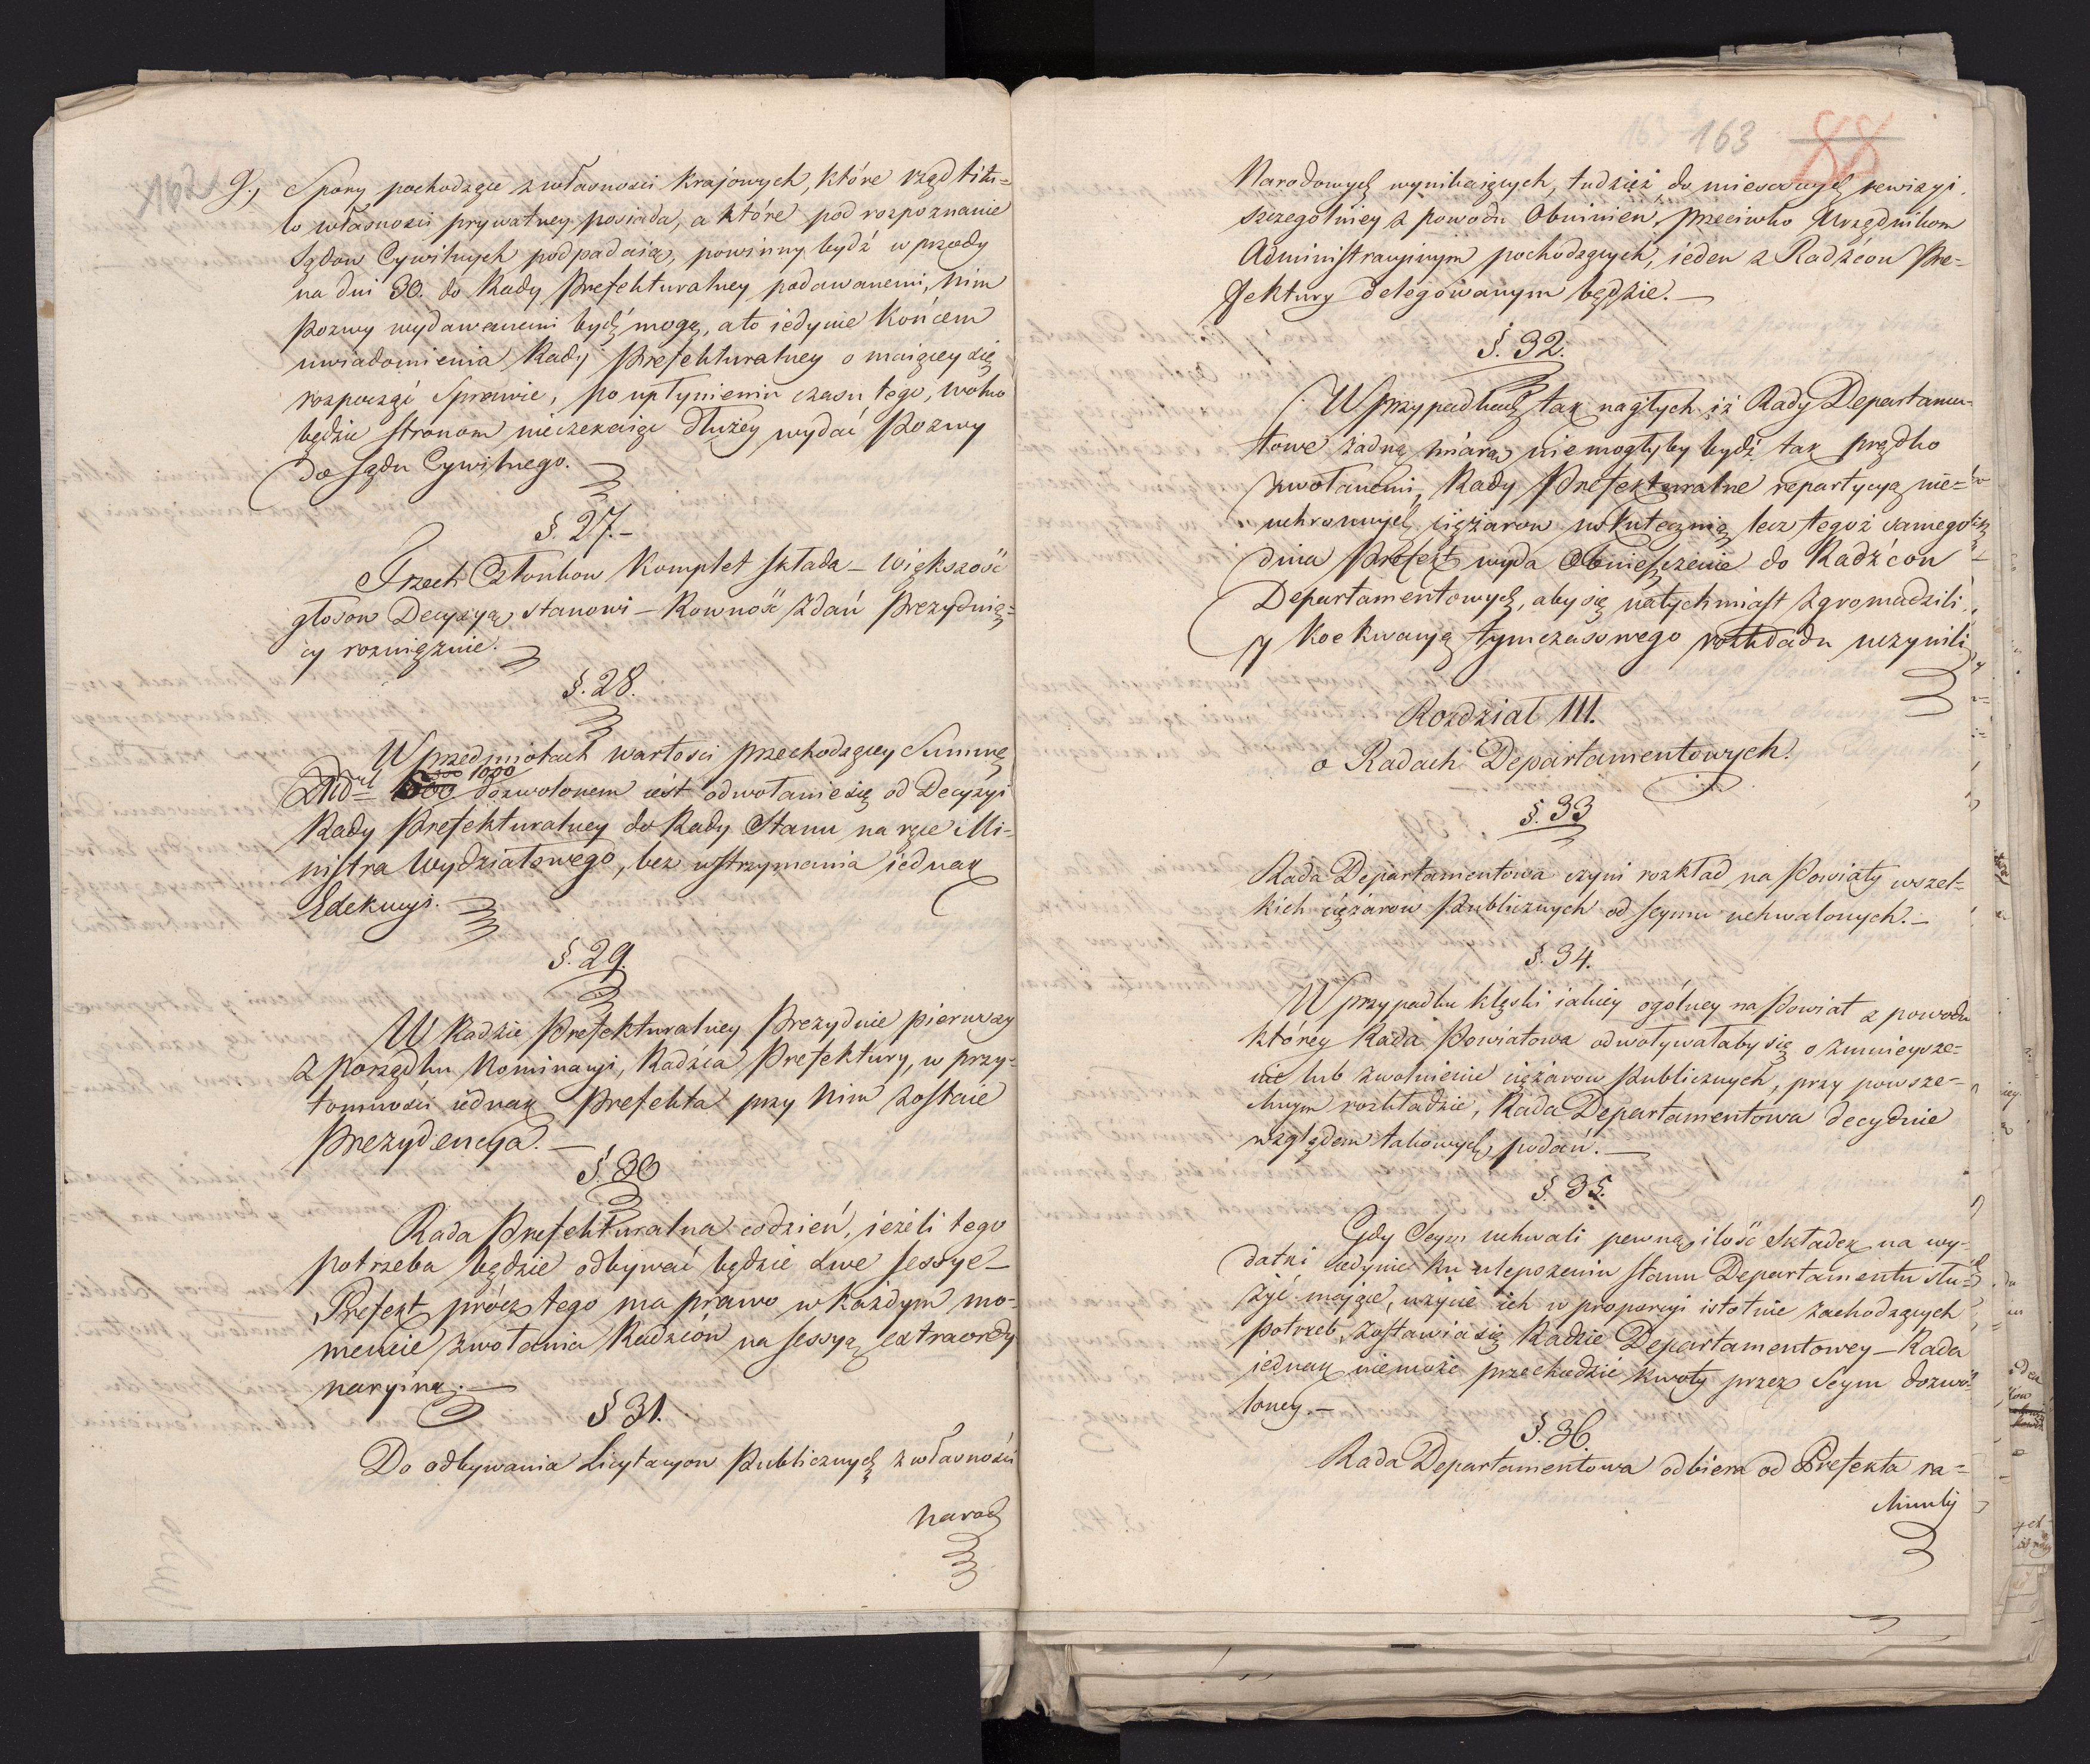 162
g., Spory pochodzące z własnosci krajowych, które rząd titu=
lo własnosci prywatney posiada, a które pod rozpoznanie
Sądow Cywilnych podpadaią, powinny bydź w przody
na dni 30. do Rady Prefekturalney podawanemi, nim
pozwy wydawanemi bydź mogą, a to iedynie końcem
uwiadomienia Rady Prefekturalney o maiącey się
rozpocząć Sprawie, po upłynieniu czasu tego, wolno
będzie stronom nieczekaiąc dłużey wydać Pozwy
do Sądu Cywilnego.
§. 27.
Trzech Członkow Komplet składa – większość
głosow Decyzyą stanowi – Rowność zdań Prezyduią=
cy rozwiązuie.
§. 28.
W przedmiotach wartosci przechodzącey Summę
1000
dozwolonem iest odwołanie się od Decyzyi
Rady Prefekturalney do Rady Stanu na ręce Mi=
nistra Wydziałowego, bez wstrzymania iednak
Exekucyi.
§. 29.
W Radzie Prefekturalney Prezyduie pierwszy
z porządku Nominacyi, Radźca Prefektury, w przy=
tomnosci iednak Prefekta przy nim zostaie
Prezydencya. –
§. 30
Rada Prefekturalna codzień, ieżeli tego
potrzeba będzie odbywać będzie dwe sessye –
Prefekt prócz tego ma prawo w każdym mo=
mencie zwołania Radzców na sessyą extraordy
naryiną. –
§ 31.
Do odbywania Licytacyow Publicznych z własności
Narod
163 88
Narodowych wynikaiących, tudzież do miescowych rewizyi
szczegolniey z powodu Obwinień przeciwko Urzędnikom
Administracyinym pochodzących, ieden z Radźcow Pre=
fektury delegowanym będzie. –
§. 32.
W przypadkach tak nagłych iż Rady Departamen=
towe żadną miarą niemogłyby bydź tak prędko
zwołanemi, Rady Prefekturalne repartycyą nie=
uchronnych ciężarow uskutecznią lecz tegoż samego
dnia Prefekt wyda Obwieszczenie do Radźcow
Departamentowych, aby się natychmiast zgromadzili
y Koekwacyą tymczasowego rozkładu uczynili
Rozdział III.
o Radach Departamentowych.
§. 33
Rada Departamentowa czyni rozkład na Powiaty wszel=
kich ciężarow Publicznych od Seymu uchwalonych. –
§. 34.
W przypadku klęski iakiey ogólney na Powiat z powodu
którey Rada Powiatowa odwoływałaby się o zmnieysze=
nie lub zwolnienie ciężarow Publicznych, przy powsze=
chnym rozkładzie, Rada Departamentowa decyduie
względem takowych podań. –
§. 35.
Gdy Seym uchwali pewną ilość składek na wy=
datki iedynie ku ulepszeniu stanu Departamentu słu=
żyć maiące, użycie ich w proporcyi istotnie zachodzących
potrzeb, zostawia się Radzie Departamentowey – Rada
iednak niemoże przechodzić kwoty przez Seym dozwo=
loney. –
§. 36.
Rada Departamentowa odbiera od Prefekta ra=
chunki